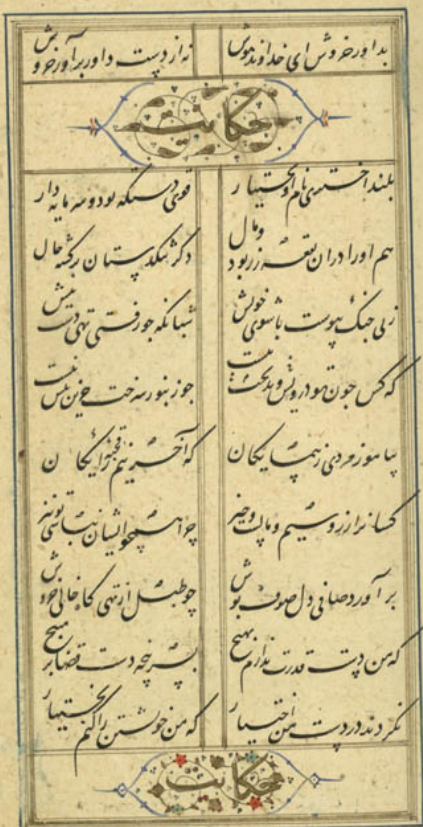 بداور خروش ای خداوند هوش نه از دست داور برآور خروش
حکایت
بلند اختری نام او بختیار قوی دستگه بود و سرمایه دار
هم او را در آن بقعه زر بود و مال دگر تنگدستان برگشته حال
زنی جنگ پیوست با شوی خویش شبانگه چو رفتی تهی دست پیش
که کس چون تو درویش و بدبخت نیست چو زنبور سرخت جزین نیش نیست
بیاموز مردی ز همسایگان که آخر نیم قحبهٔ رایگان
کسانرا زر و سیم و مالست و چیز چرا همچو ایشان نباشی تو نیز
برآورد صافی دل صوف پوش چو طبل از تهی گاه خالی خروش
که من دست قدرت ندارم بهیچ بسرپنجه دست قضا بر مپیچ
نکردند در دست من اختیار که من خویشتن را کنم بختیار
حکایت